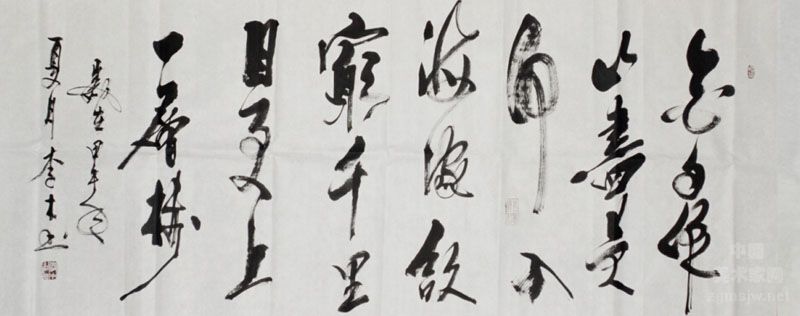 白日依
山盡黃
河入
海流欲
窮千里
目更上
一層樓
歲在甲午年
夏月李木书
中国
美术家网
zgmsjw.net